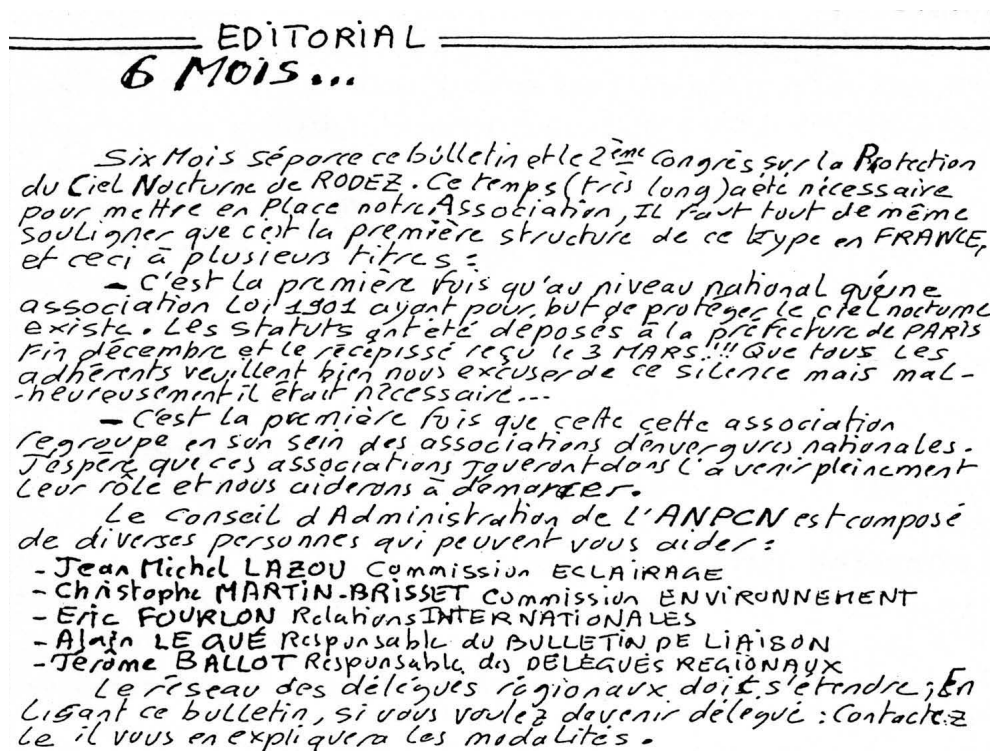 EDITORIAL
6 MOIS...
Six Mois séparce ce bulletin et le 2ème Congrès sur la Protection
du Ciel Nocturne de RODEZ. Ce temps (très long) a été nécessaire
pour mettre en Place notre Association, Il faut tout de même
souligner que c'est la première structure de ce type en FRANCE,
et ceci à plusieurs titres :
- C'est la première fois qu'au niveau national qu'une
association Loi 1901 ayant pour but de protéger le ciel nocturne
existe. Les statuts ont été déposés à la préfecture de PARIS
Fin décembre et le récépissé reçu le 3 MARS.!!! Que tous les
adhérents veuillent bien nous excuser de ce silence mais mal-
-heureusement il était nécessaire...
- C'est la première fois que cette cette association
regroupe en son sein des associations d'envergures nationales.
J'espère que ces associations joueront dans l'avenir pleinement
leur rôle et nous aiderons à démarrer.
Le Conseil d'Administration de L'ANPCN est composé
de diverses personnes qui peuvent vous aider :
- Jean Michel LAZOU Commission ECLAIRAGE
- Christophe MARTIN-BRISSET Commission ENVIRONNEMENT
- Eric FOURLON Relations INTERNATIONALES
- Alain LE QUÉ Responsable du BULLETIN DE LIAISON
- Jérôme BALLOT Responsable des DÉLÉGUÉS REGIONAUX
Le réseau des délégués régionaux doit s'étendre ; En
Lisant ce bulletin, si vous voulez devenir délégué : Contactez
le il vous en expliquera les modalités.